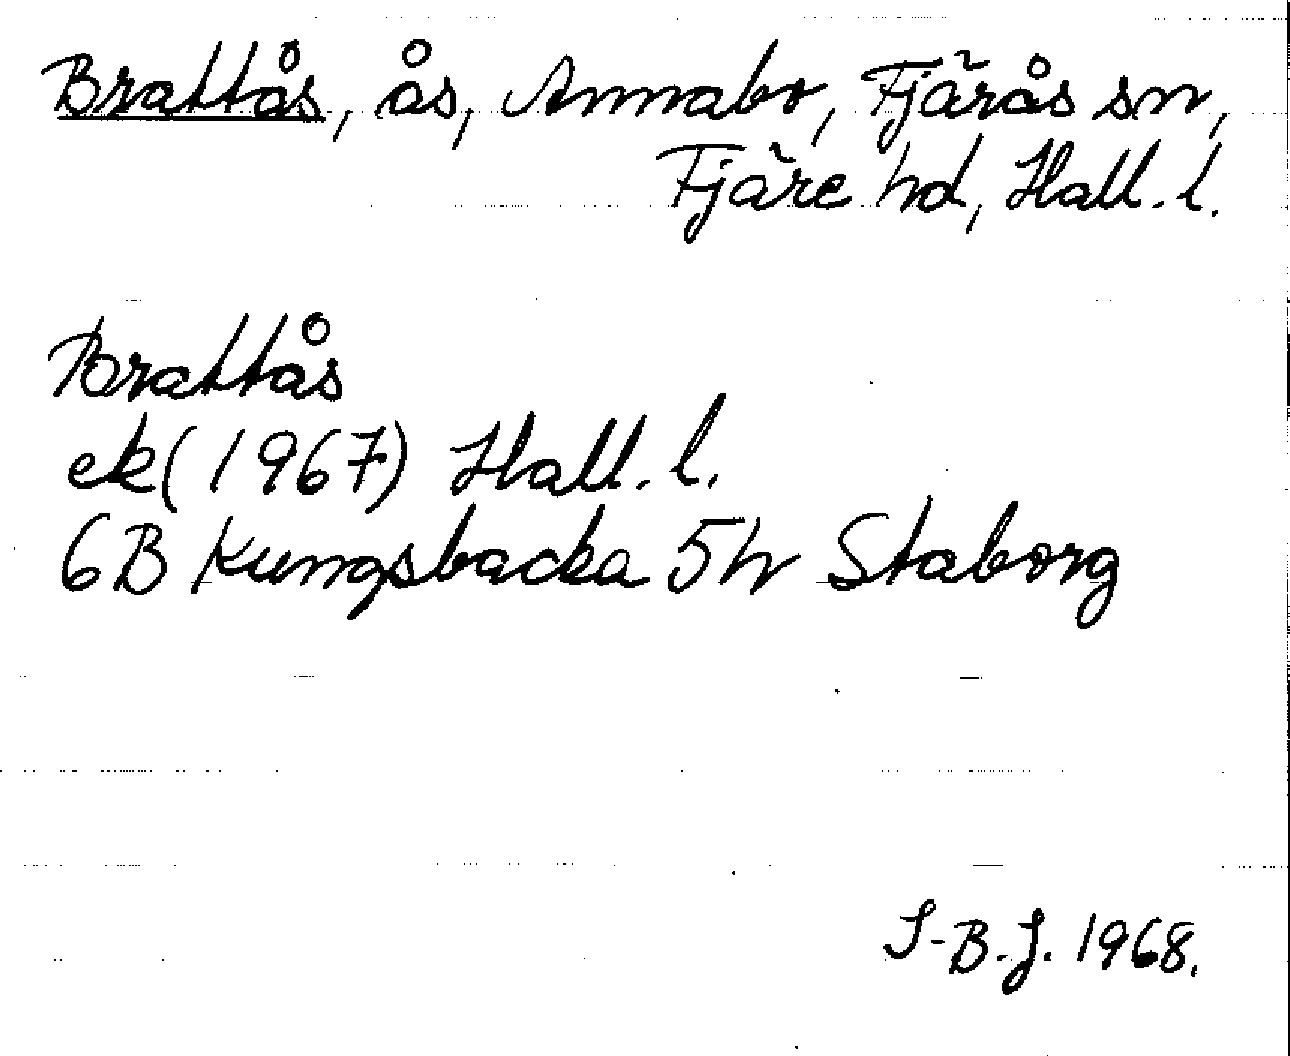 Brattås, ås, Annabo, Fjärås sn,
Fjäre hd, Hall. l.
Brattås
ek (1967) Hall. l.
6B Kungsbacka 5h Staborg
I-B. J. 1968.